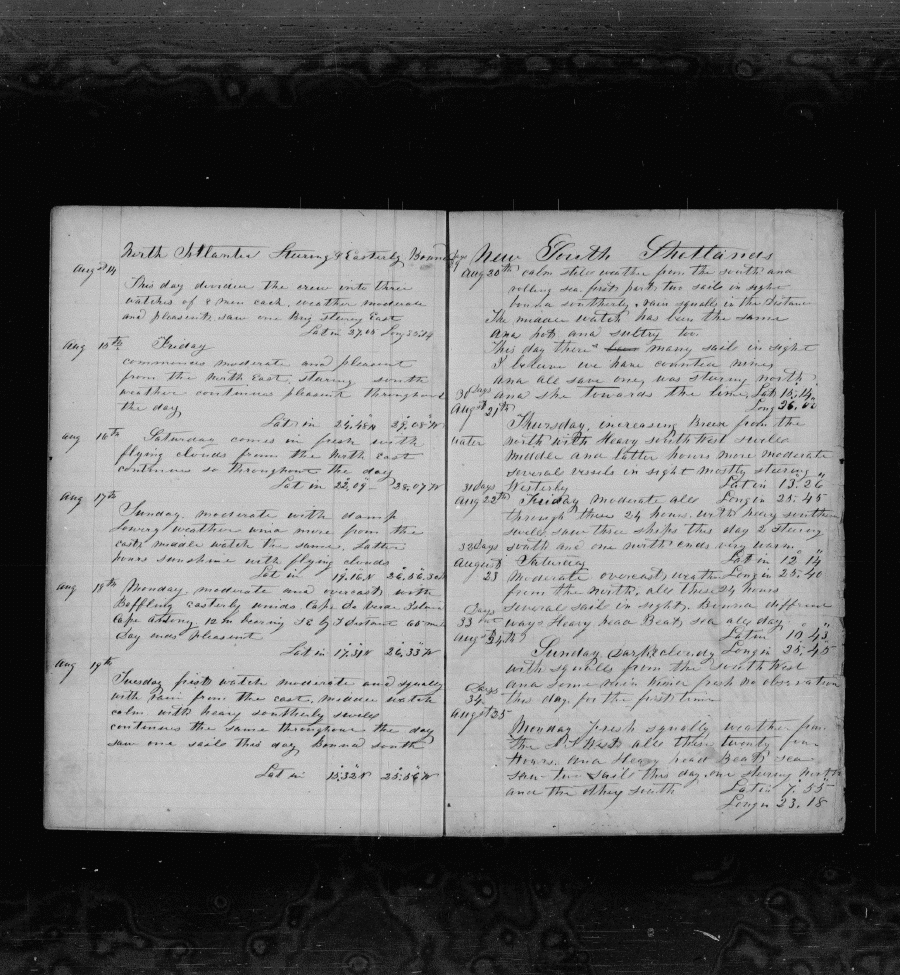 North Atlantic Steering Easterly Bound
Aug 14
This day devidue the crew into three
watches of 8 men each. weather moderate
and pleasent, saw one Brig stering East
Lat in 37,,
Aug 15th Friday
commences moderate and pleasent
from the North East, staring south
weather continues pleasent throughout
the day
Lat in 24,,46 N 29,,05 W
Aug 16th Saturday comes in fresh with
flying clouds from the North East
continues so throughout the day
Lat in 22,,09 28,,07 W
Aug 17th
Sunday moderate with damp
lowery weather wind more from the
east, middle watch the same, Latter
hours sunshine with flying clouds
Lat in 19,,16 N 26,,56,,30
Aug 18th Monday moderate and overcast with
Baffling easterly winds Cape De Verde Islands
Cape Antony 12 m bearing SE by S Distant
Day ends pleasent
Lat in 17,,31 N 26,,33 W
Aug 19th
Tuesday first watch moderate and squally
with rain from the east, middle watch
calm with heavy southerly swell
continues the same throughout the day
saw one sails this day Bound south
Lat in 15,,32 N 25,,56 W
New South Shetlands
Days 29
Aug 20th calm still weather from the south and
rolling sea first part, two sails in sight
bound southerly, rain squalls in the distance
The middle watch has been the same
and hot and sultry too
This day there many sail in sight
I believe we have counted nine,
and all save one, was stering north
30 Days and she towards the line, Lat 15,,14
August 21th Long 26,,00
Thursday, increasing Breeze from the
water north with Heavy south West swell
middle and latter hours more moderate
several vessels in sight mostly steering
31 Days Westerly Lat in 13,,26
Aug 22th Friday moderate all Long in 25,,45
through these 24 hours. with heavy southern
swell saw three ships this day 2 stering
32 Days south and one north ends very warm
August Saturday Lat in 12,,14
23 Moderate overcast weather Long in 25,,40
from the north, all these 24 hours
Days several sail in sight, Bound different
33 out ways Heavy head Beat sea all day
Aug 24th Lat in 10,,43
Sunday dark cloudy Long in 25,,45
with squalls from the southwest
and some rain no observation
Days this day for the first time
34
August 25
Monday fresh squally weather from
the S S West all these twenty four
Hours. and Heavy head Beat sea
saw two sails this day, one stering north
and the other south Lat in 7,,55
Long in 23,,18